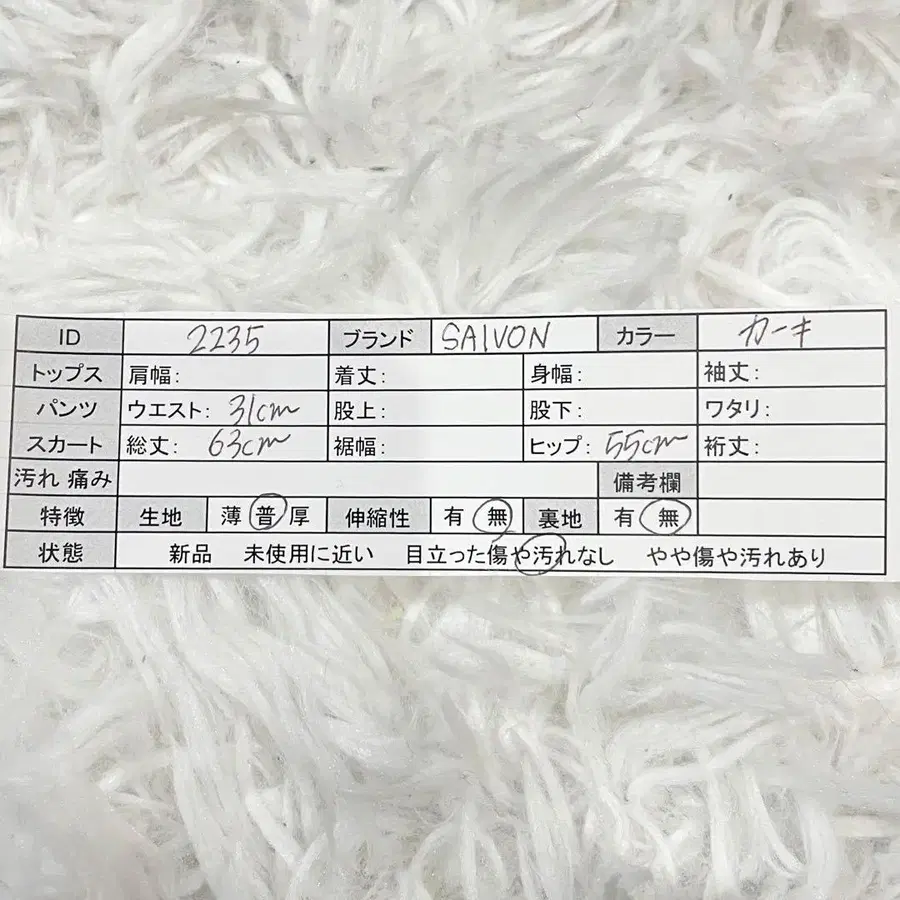 ID 2235 ブランド SAIVON カラー カーキ
トップス 肩幅: 着丈: 身幅: 袖丈:
パンツ ウエスト: 31cm 股上: 股下: ワタリ:
スカート 総丈: 63cm 裾幅: ヒップ: 55cm 裄丈:
汚れ 痛み 備考欄
特徴 生地 薄 普 厚 伸縮性 有 無 裏地 有 無
状態 新品 未使用に近い 目立った傷や汚れなし やや傷や汚れあり